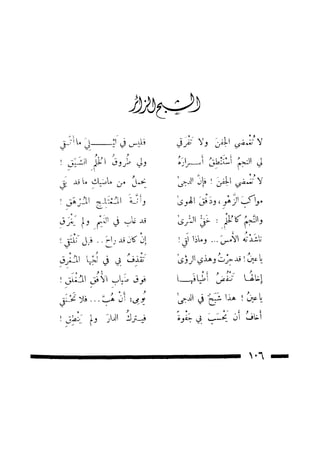 الشبح الزائر
لا تُغمضي الجفنَ ولا تَفْرَقي فليس في ما أتّقي
لي النجمُ أَسْتَنْطِقُ أسرارَهُ ولي طُروقُ الحُلُمِ الشَّيِّقِ !
لا تُغمضي الجفنَ ! فإنّ الدجى يحملُ من ماضيك ما قد بقي
مواكبَ الزَّهْوِ ، ودَفْقَ الهوى وأنّةَ المُرهَقِ !
والنَّجمُ كالحُلْمِ : خَفِيُّ السُّرى قد غابَ في الغَيْمِ ولم يَغْرَقِ
ناشَدْتُه الأمسَ ... وماذا لَقِي ! إنْ كان قد راحَ .. فهل نَلْتَقي !
ياعينُ ! قد حِرْتُ وهذي الرؤى تَقذِفُ بي في لُجِّها المُغْرِقِ
إخالُها تَنْفُضُ أطيافَهـا فوق ضَبابِ الأُفُقِ المُغْلَقِ !
ياعينُ ! هذا شَبَحٌ في الدجى يُومي، أنْ هُبَّ ... فلا تَخْنَقي
أخافُ أن يَحْسَبَ بي جَفْوةً فيتركُ الدارَ ولم يَنْطِقِ !
١٠٦